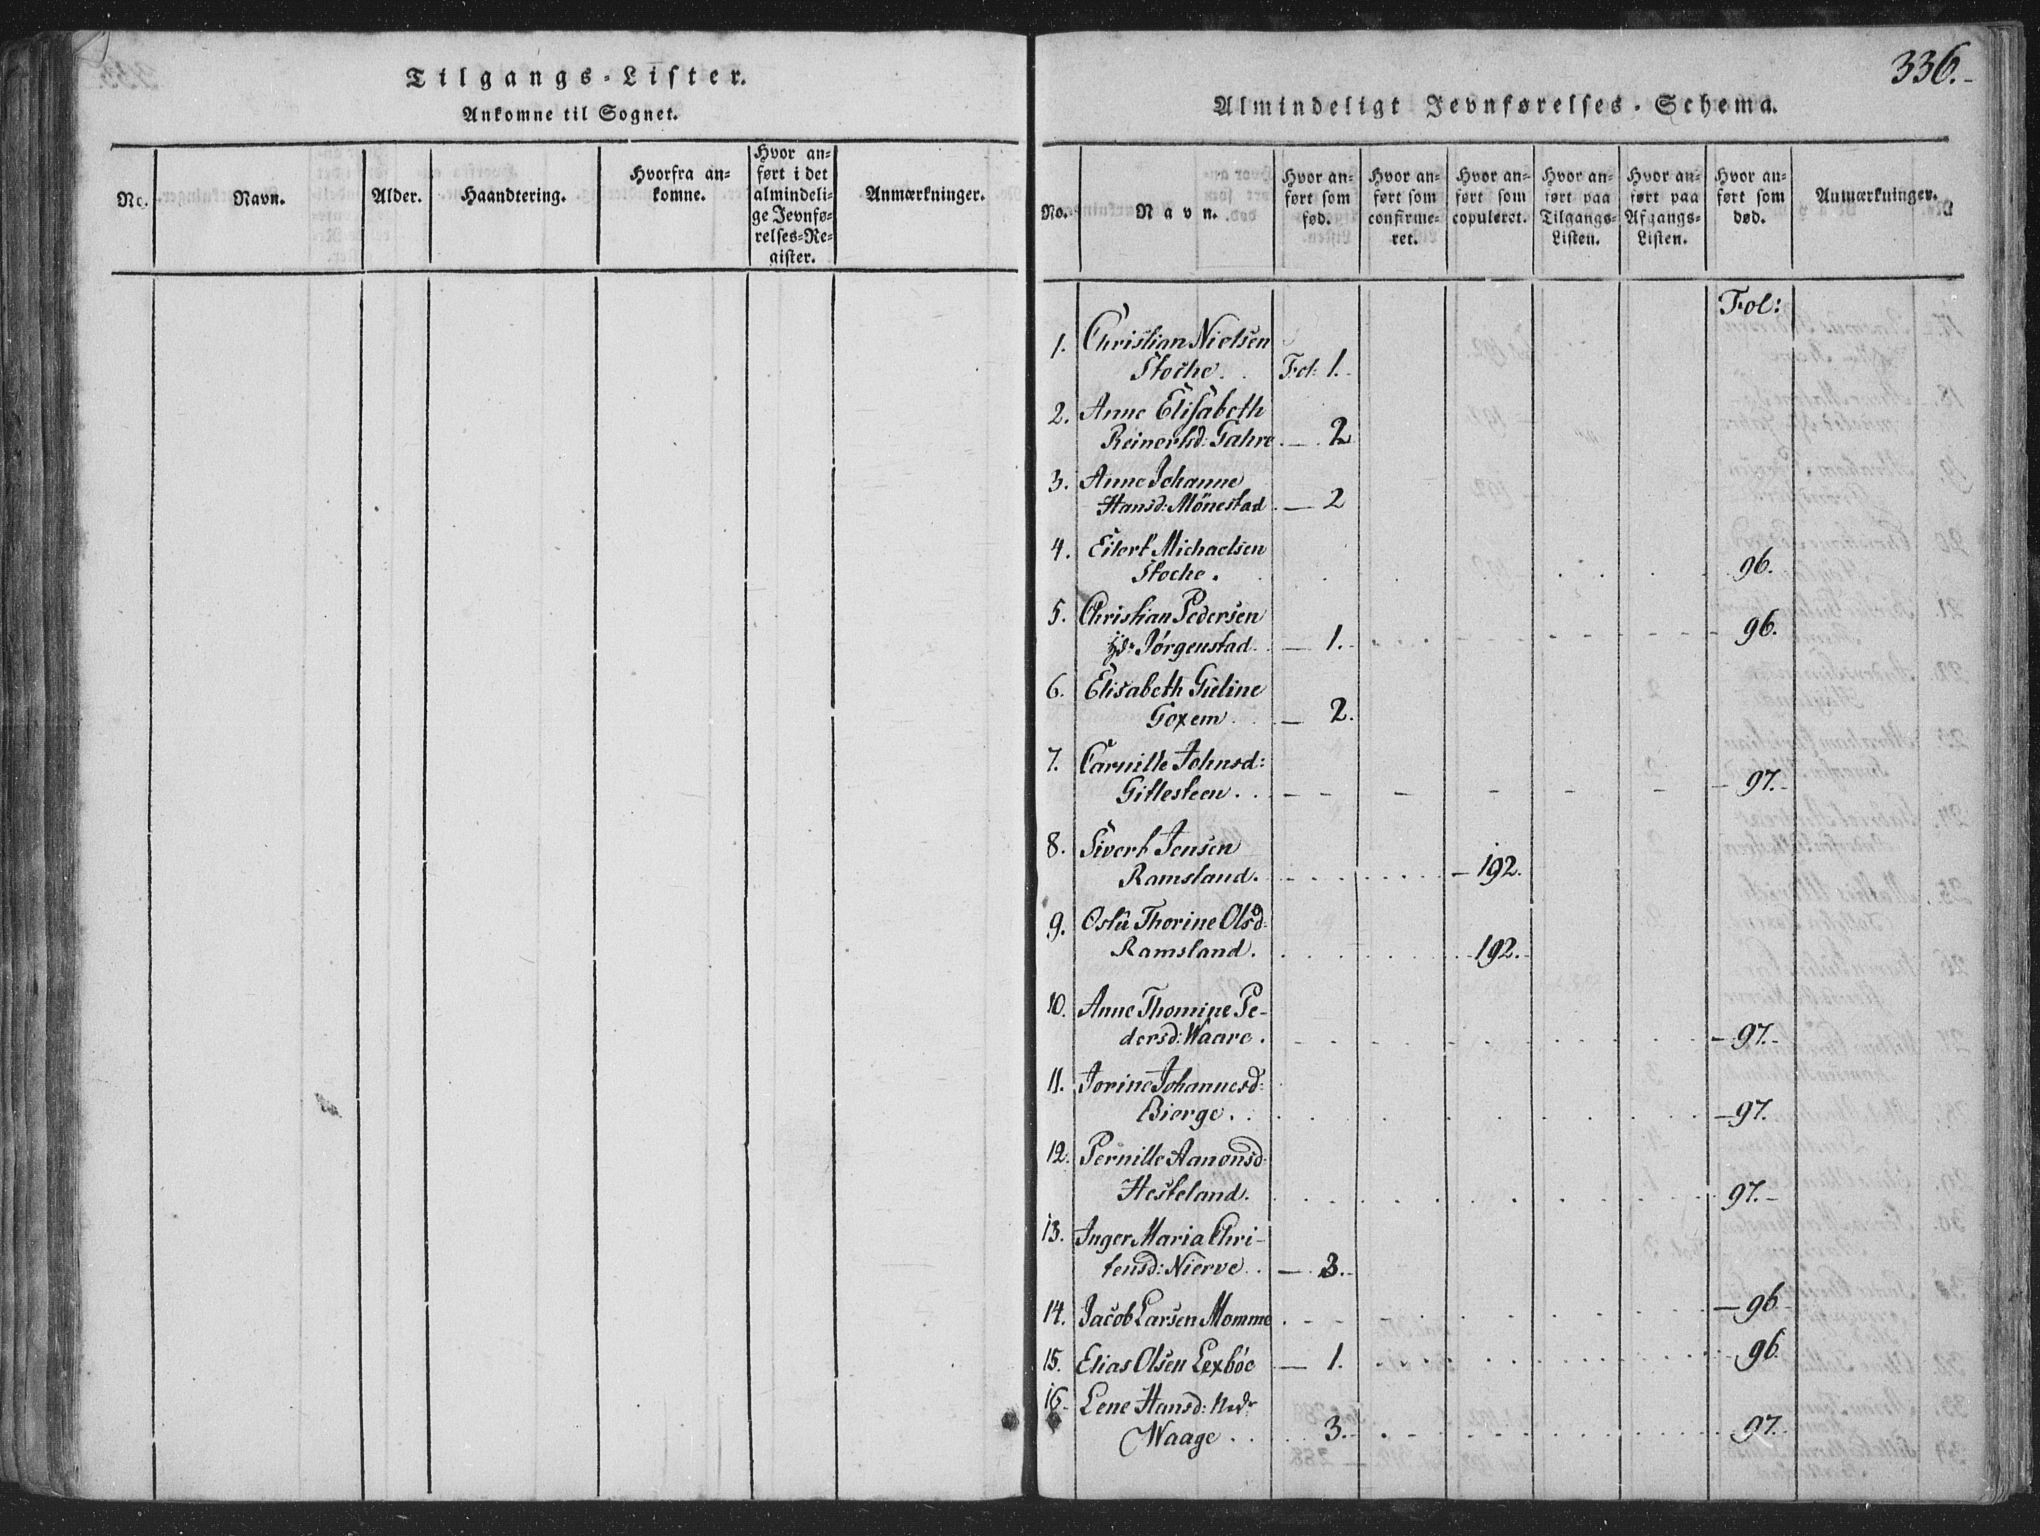 Tilgangs-Lister.
Ankomne til Sognet.
No.
Navn.
Alder.
Haandtering.
Hvorfra an-
komne.
Hvor an-
ført i det
almindeli-
ge Jevnfø-
relses-Re-
gister.
Anmærkninger.
336.-
Almindeligt Jevnførelses-Schema.
No.
Navn.
Hvor an-
ført som
fød.
Hvor an-
ført som
confirme-
ret.
Hvor an-
ført som
copuleret.
Hvor an-
ført paa
Tilgangs-
Listen.
Hvor an-
ført paa
Afgangs-
Listen.
Hvor an-
ført som
død.
Anmærkninger.
Fol:
1. Christian Nielsen
Stoche. Fol: 1.
2. Anne Elisabeth
Reinertsd: Gahre. — 2
3. Anne Johanne
Hansd: Mönestad — 2
4. Eilert Michaelsen
Stoche. 96.
5. Christian Pedersen
Jørgenstad. — 1. 96.
6. Elisabeth Guline
Goxem — 2.
7. Carnille Johnsd:
Gitlesteen. — 97.-
8. Sivert Jensen
Ramsland. — 192.
9. Oslu Thorine Olsd:
Ramsland. 192.
10. Anne Thomine Pe-
dersd: Waare. — 97.-
11. Jorine Johannesd:
Bierge. — 97.
12. Pernille Aanonsd:
Hesteland. 97.-
13. Inger Maria Chri-
tensd: Nierve. — 3.-
14. Jacob Larsen Momme — 96
15. Elias Olsen Lexböe — 1. 96
16. Lene Hansd: Ned:
Waage. 3.- 97.